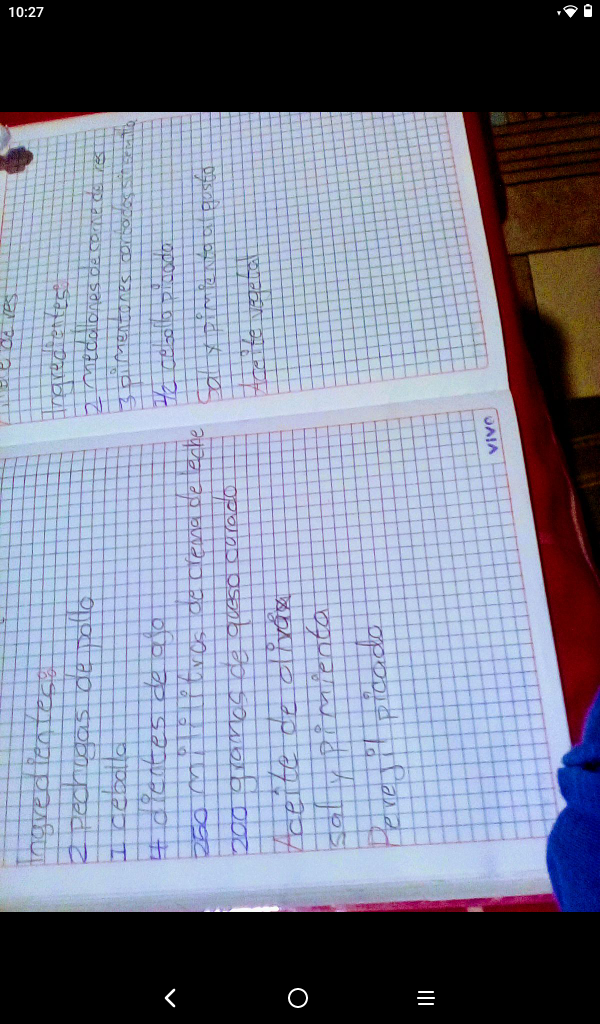 10:27
de res
Ingredientes:
2 medallones de carne de res
3 pimentones cortados sin semilla
1/2 cebolla picada
Sal y pimienta a gusto
Aceite vegetal
Ingredientes:
2 pechugas de pollo
1 cebolla
4 dientes de ajo
250 mililitros de crema de leche
200 gramos de queso curado
Aceite de oliva
sal y pimienta
Perejil picado
VIVO